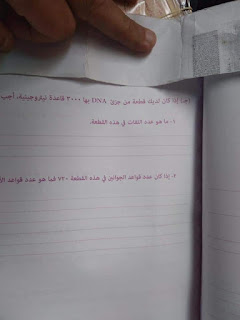 (جـ) إذا كان لديك قطعة من جزئ DNA بها ٣٠٠٠ قاعدة نيتروجينية، أجب
٤. ما هو عدد اللفات في هذه القطعة.
٥. إذا كان عدد قواعد الجوانين في هذه القطعة ٧٢٠ فما هو عدد قواعد